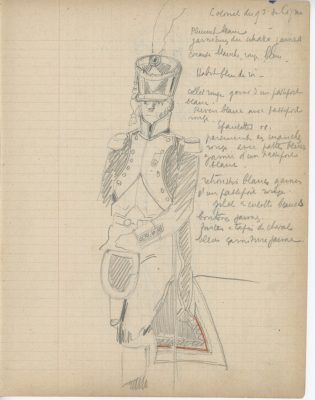 Colonel du 9e de ligne
Plumet blanc
garniture du shako jaune
Cocarde blanche rouge bleu
Habit bleu de roi
collet rouge garni d'un passepoil
blanc
Revers blanc avec passepoil
rouge
Epaulettes or
parements en manche
rouge avec pattes blanches
garnies d'un passepoil
blanc
retroussis blancs garnis
d'un passepoil rouge
gilet et culotte blancs
boutons jaunes
fontes et tapis de cheval
bleus garniture jaune